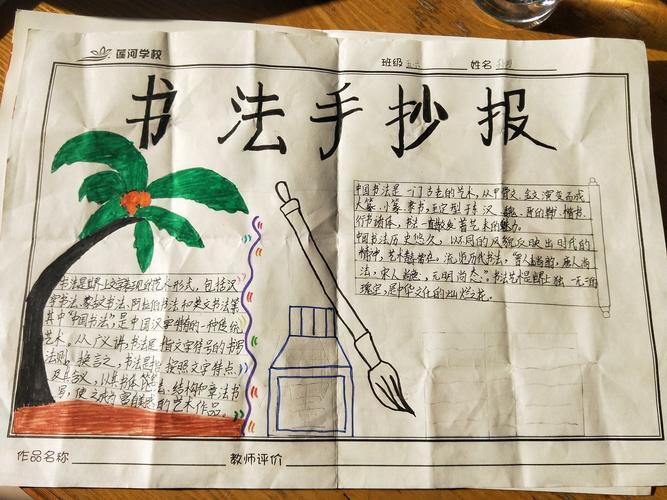 莲河学校
班级
姓名
书法手抄报
中国书法是一门古老的艺术,从甲骨文、金文演变而成
大篆、小篆、隶书,至定型于东汉、魏、晋的草书、楷书、
行书诸体,书法一直散发着艺术的魅力。
中国书法历史悠久,以不同的风貌反映出时代的
精神,艺术青春常在。浏览历代书法,"晋人尚韵,唐人尚
法,宋人尚意,元明尚态"。书法艺术是独一无二的
瑰宝,是中华文化的灿烂之花。
书法是世界上文字表现的艺术形式,包括汉
字书法、蒙古文书法、阿拉伯书法和英文书法等
其中"中国书法",是中国汉字特有的一种传统
艺术。从广义讲,书法是指文字符号的书写
法则。换言之,书法是指按照文字特点
及其含义,以其书体笔法、结构和章法书
写,使之成为富有美感的艺术作品。
作品名称
教师评价